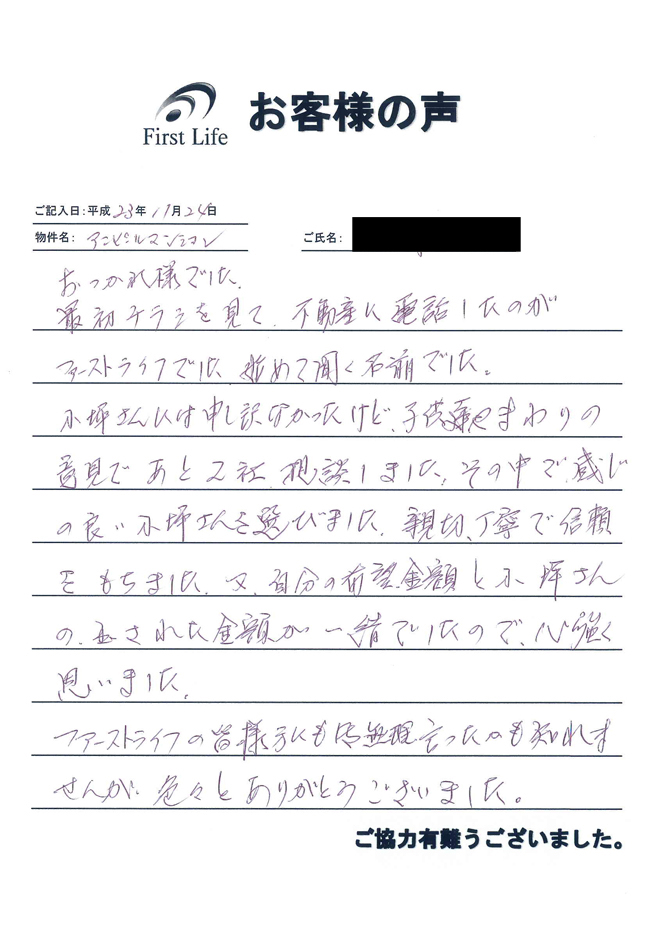 First Life
お客様の声
ご記入日:平成23年11月24日
物件名: アンピールマンション
ご氏名:
おつかれ様でした。
最初チラシを見て、不動産に電話したのが
ファーストライフでした。始めて聞く名前でした。
小坪さんには申し訳なかったけど、子供やまわりの
意見であと2社相談しました。その中で感じ
の良い小坪さんを選びました。親切、丁寧で信頼
をもちました。又、自分の希望金額と小坪さん
の出された金額が一緒でしたので、心強く
思いました。
ファーストライフの皆様方にも御無理言ったかも知れま
せんが、色々とありがとうございました。
ご協力有難うございました。